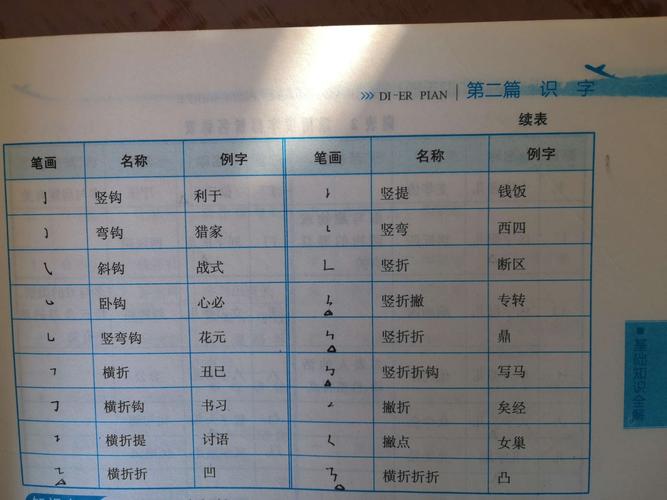 >>> DI-ER PIAN | 第二篇 识 字
续表
笔画 名称 例字 笔画 名称 例字
亅 竖钩 利于 竖提 钱饭
弯钩 猎家 竖弯 西四
斜钩 战式 竖折 断区
卧钩 心必 竖折撇 专转
乚 竖弯钩 花元 竖折折 鼎
横折 丑已 竖折折钩 写马
横折钩 书习 撇折 矣经
横折提 讨语 撇点 女巢
横折折 凹 横折折折 凸
基础知识全解